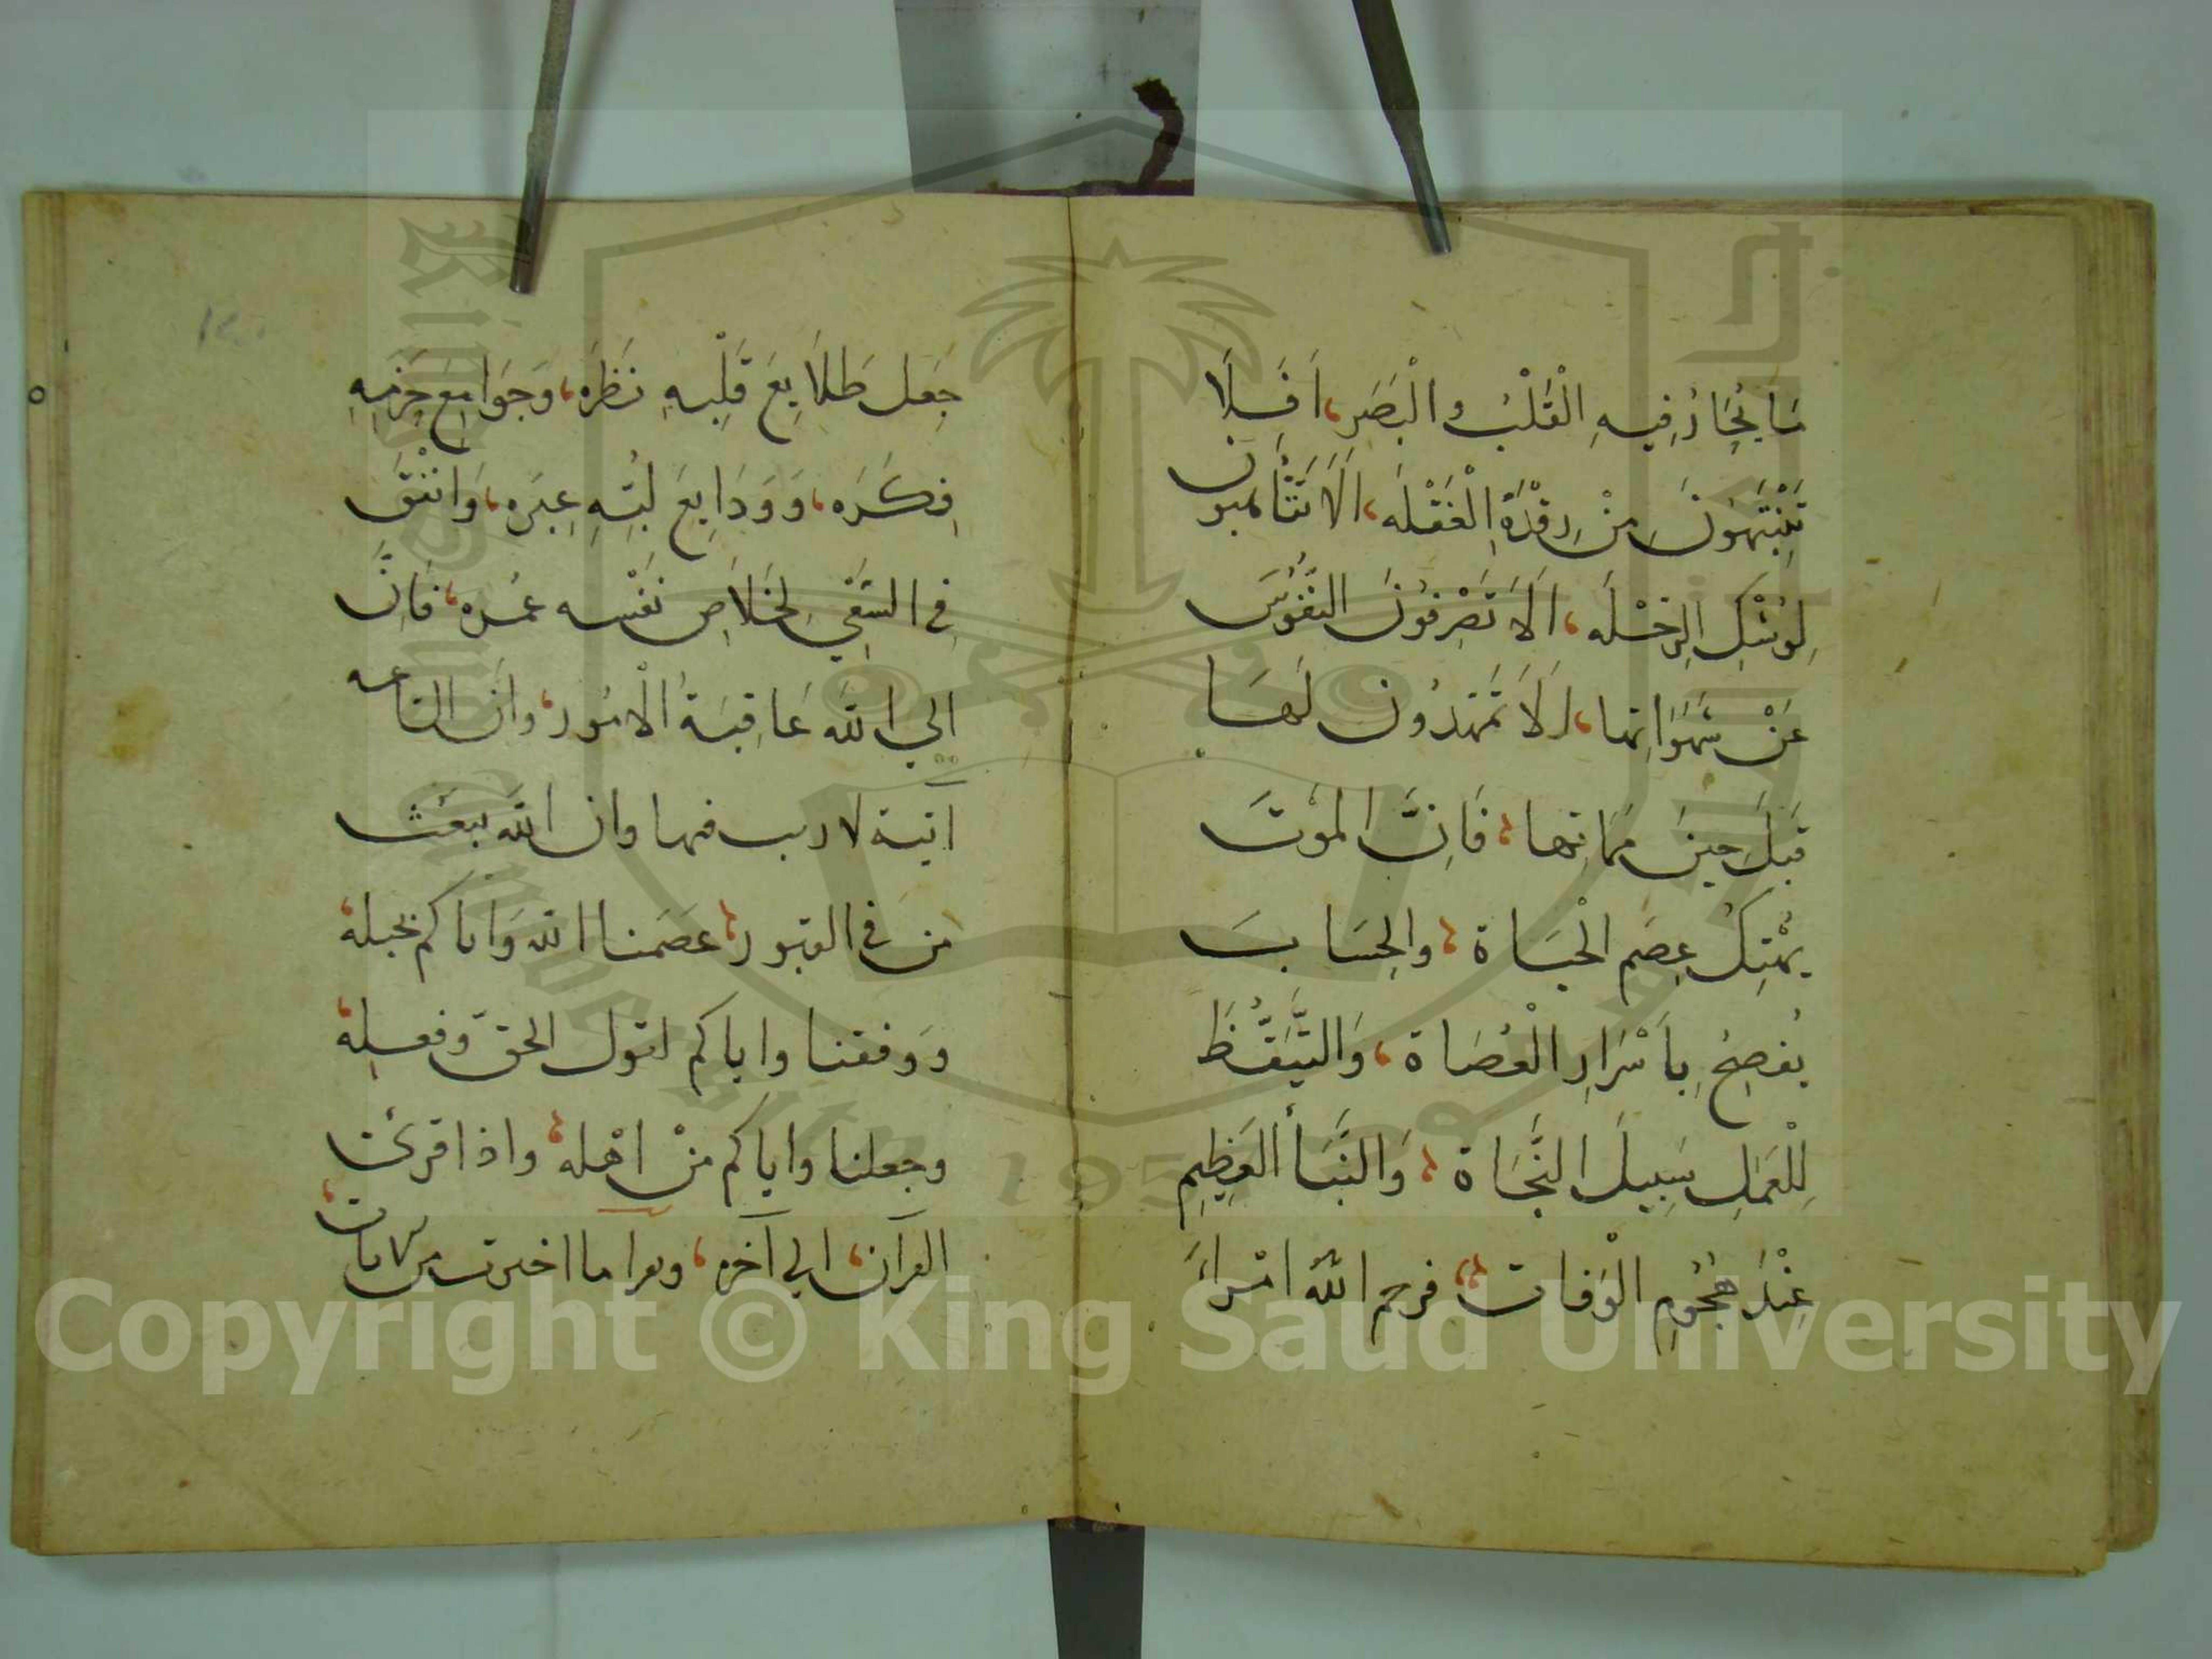 مَا يُحَارُ فِيهِ الْقَلْبُ والْبَصَرِ، اَفَلَا
تَنْتَبِهُونَ مِنْ رِقْدَةِ الْغَفْلَه، اَلَا تَتَأَهبون
لِوُشْكِ الرِحْلَه، اَلَا تَصْرِفُونَ النّفُوسَ
عَنْ شَهَوَاتِها، اَلَا تمَهدُون لَهَا
قَبلَ حِينَ ممَاتِها، فَاِنَّ الموْتَ
يهْتِكُ عِصَم الْحيَاة، والحِسَابَ
يُفصِحُ بِاَسْرَارِ الْعُصَاة، وَالتَّيَقُّظَ
لِلْعَمَلِ سَبِيلَ النَّجَاة، وَالنَّبَأ العَظِيمِ
عِنْدَ هُجُومِ الْوَفات، فرحم اللّه امْرأً
جَعَل طَلَايِعَ قَلْبِهِ نَظَرَه، وَجَوَامِع حَزمِهِ
فِكَرَه، وَوَدَايعَ لُبّهِ عِبَرَه، وَانْفَقَ
فِي السَّعْيِ لِخَلَاصِ نَفْسه عُمْره، فَاِنَّ
الي اللّه عَاقِبَةُ الْامُور، وانَ الساعه
آتية لا ريب فيها وان الله يبعَث
من في القبور، عصَمنا الله وَاياكم بحبله،
وَوفقنا واياكم لقول الحقّ وفعله،
وجعلنا واياكم منْ اهْله، واذا قرئ
القرآن، الي آخره، ويقرا ما اختِرت من الايات،
Copyright © King Saud University
1957